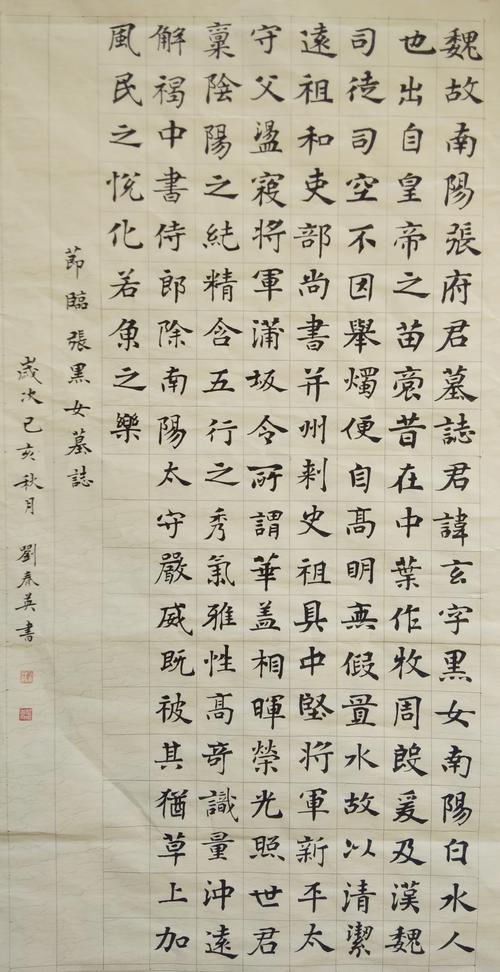 魏故南陽張府君墓誌君諱玄字黑女南陽白水人
也出自皇帝之苗裔昔在中葉作牧周殷爰及漢魏
司徒司空不因舉燭便自高明無假置水故以清潔
遠祖和吏部尚書并州刺史祖具中堅將軍新平太
守父盪寇將軍蒲坂令所謂華盖相暉榮光照世君
稟陰陽之純精含五行之秀氣雅性高奇識量沖遠
解褐中書侍郎除南陽太守嚴威既被其猶草上加
風民之悅化若魚之樂
節臨張黑女墓誌
歲次己亥秋月 劉春英書